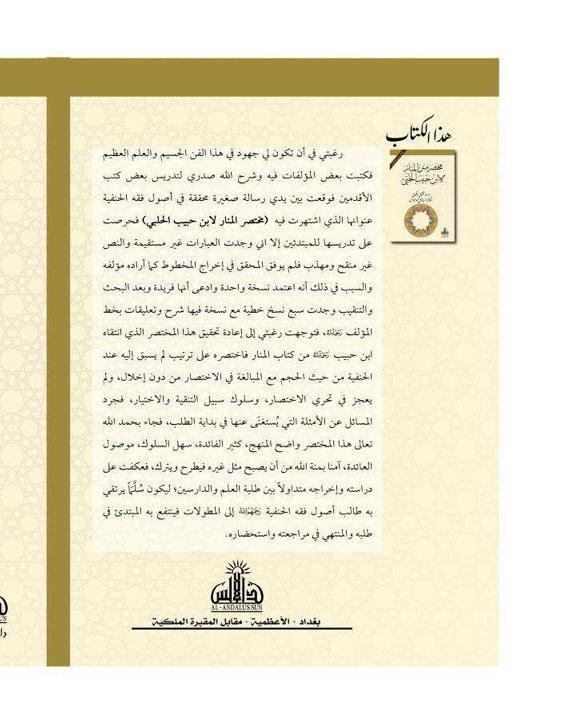 هذا الكتاب
مختصر متن المنار
لابن حبيب الحلبي
رغبتي في أن تكون لي جهود في هذا الفن الجسيم والعلم العظيم
فكتبت بعض المؤلفات فيه وشرح الله صدري لتدريس بعض كتب
الأقدمين فوقعت بين يدي رسالة صغيرة محققة في أصول فقه الحنفية
عنوانها الذي اشتهرت فيه (مختصر المنار لابن حبيب الحلبي) فحرصت
على تدريسها للمبتدئين إلا اني وجدت العبارات غير مستقيمة والنص
غير منقح ومهذب فلم يوفق المحقق في إخراج المخطوط كما أراده مؤلفه
والسبب في ذلك أنه اعتمد نسخة واحدة وادعى أنها فريدة وبعد البحث
والتنقيب وجدت سبع نسخ خطية مع نسخة فيها شرح وتعليقات بخط
المؤلف، فتوجهت رغبتي إلى إعادة تحقيق هذا المختصر الذي انتقاه
ابن حبيب من كتاب المنار فاختصره على ترتيب لم يسبق إليه عند
الحنفية من حيث الحجم مع المبالغة في الاختصار من دون إخلال، ولم
يعجز في تحري الاختصار، وسلوك سبيل التنقية والاختيار، فجرد
المسائل عن الأمثلة التي يُستغنَى عنها في بداية الطلب، فجاء بحمد الله
تعالى هذا المختصر واضح المنهج، كثير الفائدة، سهل السلوك، موصول
العائدة، آمنا بمنة الله من أن يصبح مثل غيره فيطرح ويترك، فعكفت على
دراسته وإخراجه متداولاً بين طلبة العلم والدارسين؛ ليكون سُلَّمًا يرتقي
به طالب أصول فقه الحنفية إلى المطولات فينتفع به المبتدئ في
طلبه والمنتهي في مراجعته واستحضاره.
AL-ANDALUS SUN
بغداد - الأعظمية - مقابل المقبرة الملكية